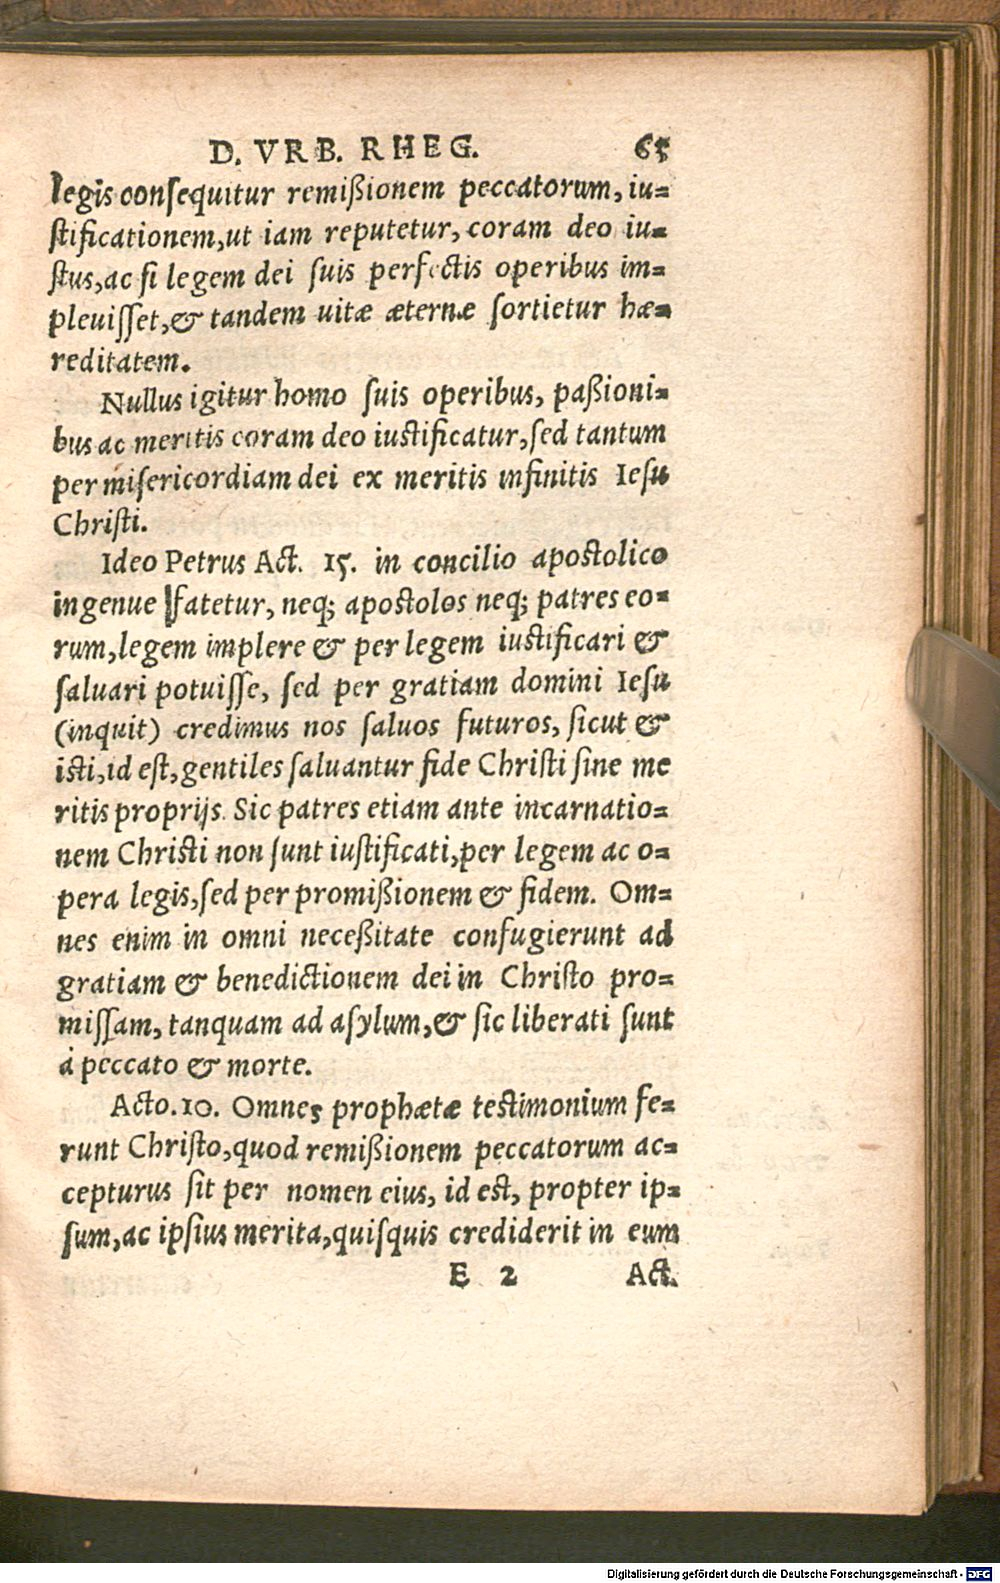 D. VRB. RHEG. 65
legis consequitur remißionem peccatorum, iu=
ſtificationem, ut iam reputetur, coram deo iu=
ſtus, ac ſi legem dei ſuis perfectis operibus im=
pleuiſſet, & tandem uitæ æternæ ſortietur hæ=
reditatem.
Nullus igitur homo ſuis operibus, paßioni=
bus ac meritis coram deo iuſtificatur, ſed tantum
per miſericordiam dei ex meritis infinitis Ieſu
Chriſti.
Ideo Petrus Act. 15. in concilio apoſtolico
ingenue fatetur, neq; apoſtolos neq; patres eo=
rum, legem implere & per legem iuſtificari &
ſaluari potuiſſe, ſed per gratiam domini Ieſu
(inquit) credimus nos ſaluos futuros, ſicut &
iſti, id eſt, gentiles ſaluantur fide Chriſti ſine me
ritis proprijs. Sic patres etiam ante incarnatio=
nem Chriſti non ſunt iuſtificati, per legem ac o=
pera legis, ſed per promißionem & fidem. Om=
nes enim in omni neceßitate confugierunt ad
gratiam & benedictionem dei in Chriſto pro=
miſſam, tanquam ad aſylum, & ſic liberati ſunt
à peccato & morte.
Acto. 10. Omnes prophætæ teſtimonium fe=
runt Chriſto, quod remißionem peccatorum ac=
cepturus ſit per nomen eius, id eſt, propter ip=
ſum, ac ipſius merita, quiſquis crediderit in eum
E 2 Act.
Digitalisierung gefördert durch die Deutsche Forschungsgemeinschaft - DFG